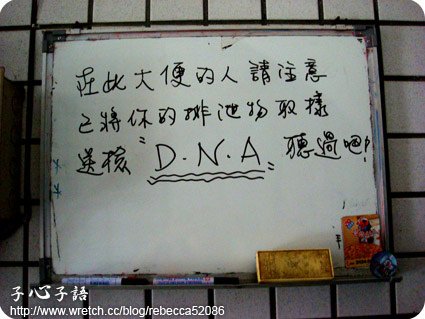 在此大便的人請注意
已將你的排泄物取樣
送檢"D.N.A"聽過吧!
子心子語
http://www.wretch.cc/blog/rebecca52086